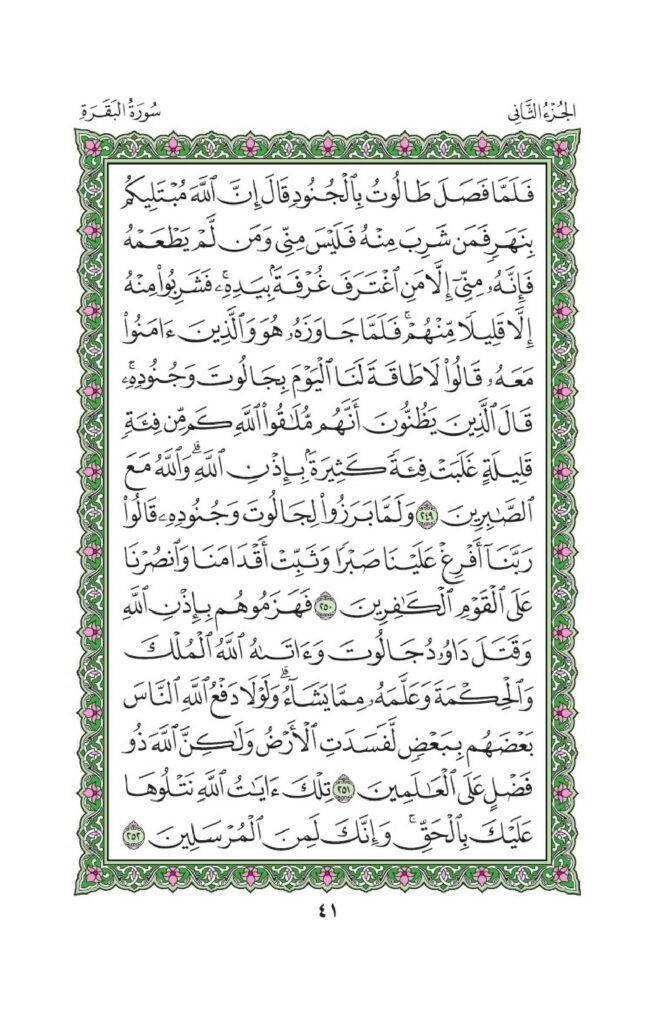 الجُزْءُ الثَّانِي
سُورَةُ البَقَرَةِ
فَلَمَّا فَصَلَ طَالُوتُ بِالْجُنُودِ قَالَ إِنَّ اللَّهَ مُبْتَلِيكُم
بِنَهَرٍ فَمَن شَرِبَ مِنْهُ فَلَيْسَ مِنِّي وَمَن لَّمْ يَطْعَمْهُ
فَإِنَّهُۥ مِنِّيٓ إِلَّا مَنِ اغْتَرَفَ غُرْفَةَۢ بِيَدِهِۦۚ فَشَرِبُوا۟ مِنْهُ
إِلَّا قَلِيلًا مِّنْهُمْۚ فَلَمَّا جَاوَزَهُۥ هُوَ وَالَّذِينَ ءَامَنُوا۟
مَعَهُۥ قَالُوا۟ لَا طَاقَةَ لَنَا الْيَوْمَ بِجَالُوتَ وَجُنُودِهِۦۚ
قَالَ الَّذِينَ يَظُنُّونَ أَنَّهُم مُّلَٰقُوا۟ اللَّهِ كَم مِّن فِئَةٍ
قَلِيلَةٍ غَلَبَتْ فِئَةً كَثِيرَةَۢ بِإِذْنِ اللَّهِۗ وَاللَّهُ مَعَ
الصَّٰبِرِينَ ٢٤٩ وَلَمَّا بَرَزُوا۟ لِجَالُوتَ وَجُنُودِهِۦ قَالُوا۟
رَبَّنَآ أَفْرِغْ عَلَيْنَا صَبْرًا وَثَبِّتْ أَقْدَامَنَا وَانصُرْنَا
عَلَى الْقَوْمِ الْكَٰفِرِينَ ٢٥٠ فَهَزَمُوهُم بِإِذْنِ اللَّهِ
وَقَتَلَ دَاوُۥدُ جَالُوتَ وَءَاتَىٰهُ اللَّهُ الْمُلْكَ
وَالْحِكْمَةَ وَعَلَّمَهُۥ مِمَّا يَشَآءُۗ وَلَوْلَا دَفْعُ اللَّهِ النَّاسَ
بَعْضَهُم بِبَعْضٍ لَّفَسَدَتِ الْأَرْضُ وَلَٰكِنَّ اللَّهَ ذُو
فَضْلٍ عَلَى الْعَٰلَمِينَ ٢٥١ تِلْكَ ءَايَٰتُ اللَّهِ نَتْلُوهَا
عَلَيْكَ بِالْحَقِّۚ وَإِنَّكَ لَمِنَ الْمُرْسَلِينَ ٢٥٢
٤١